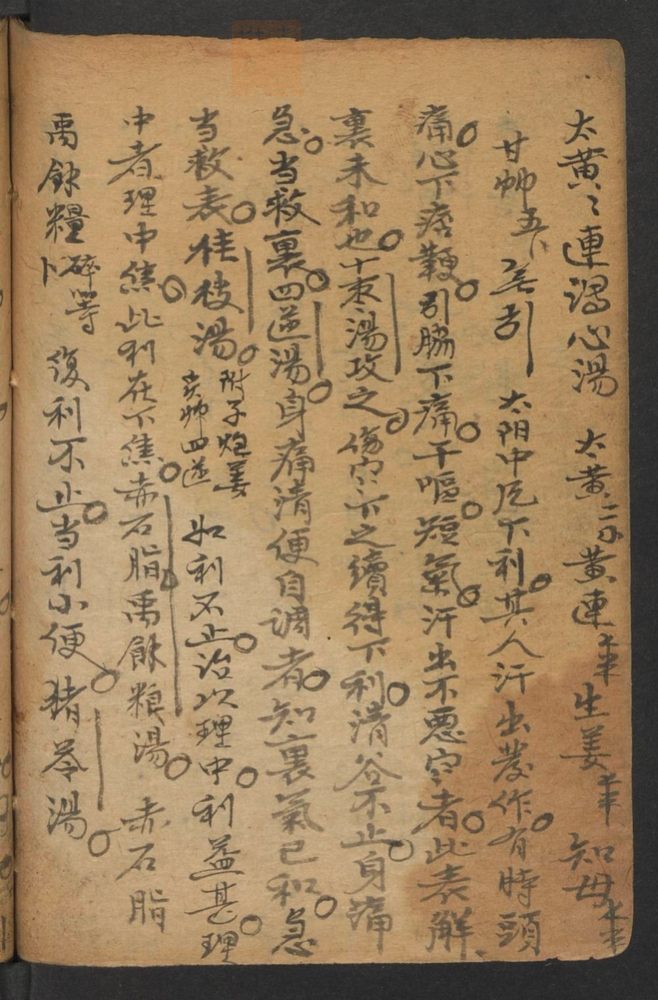 太黄〻連瀉心湯 太黄二 黄連 生姜 知母
甘 五 太阳中風下利。其人汗出發作。有時頭
痛。心下痞鞕。引脇下痛。干嘔短氣。汗出不悪寒者。此表解、
裏未和也。十枣湯攻之。傷寒下之續得下利。清谷不止。身痛
急。当救裏。四逆湯。身痛清便自調者。知裏氣已和。急
当救表。桂枝湯。附子炮姜 四逆 如利不止。治以理中。利益甚。理
中者。理中焦。此利在下焦。赤石脂禹餘粮湯。 赤石脂
禹餘糧碎等 復利不止。当利小便。猪苓湯。